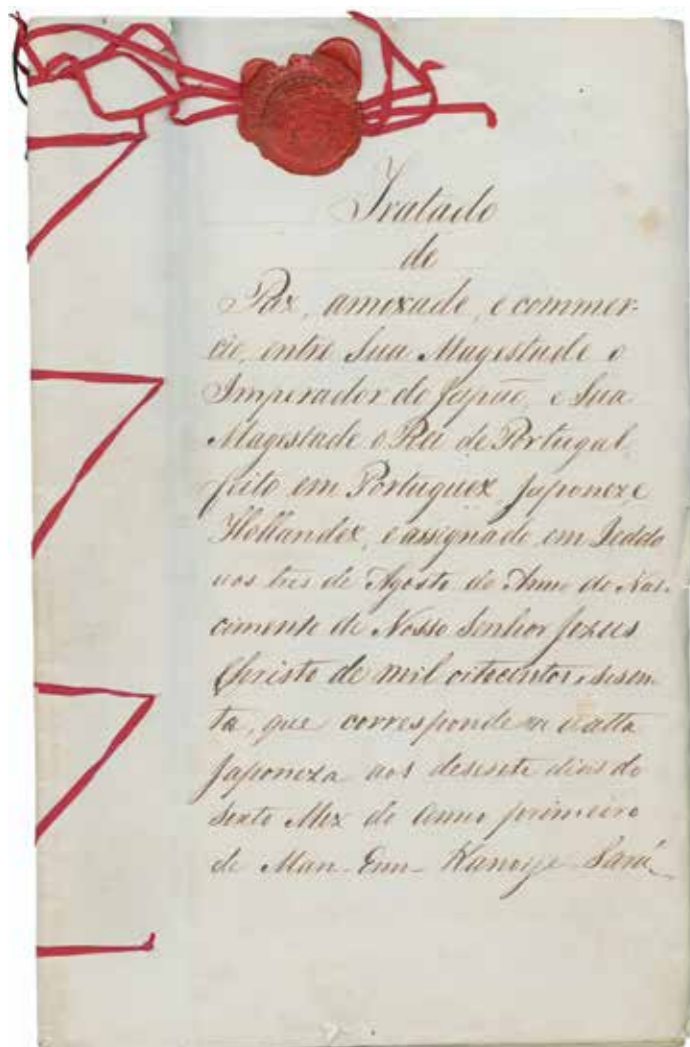 Tratado
de
Paz, amizade, e commer-
cio, entre Sua Magestade o
Imperador do Japão, e Sua
Magestade o Rei de Portugal
feito em Portuguez, Japonez e
Hollandez, e assignado em Jeddo
aos tres de Agosto do Anno do Nas-
cimento de Nosso Senhor Jezus
Christo de mil oitocentos e sesen-
ta, que corresponde na datta
Japoneza aos desesete dias do
Sexto Mez do Anno primeiro
de Man-Enn-Kanoye-Sarú